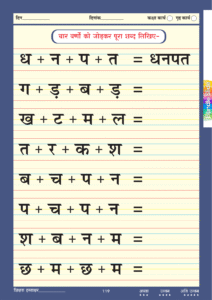 दिन दिनांक कक्षा कार्य गृह कार्य
चार वर्णों को जोड़कर पूरा शब्द लिखिए-
ध + न + प + त = धनपत
ग + ड़ + ब + ड़ =
ख + ट + म + ल =
त + र + क + श =
ब + च + प + न =
प + च + प + न =
श + ब + न + म =
छ + म + छ + म =